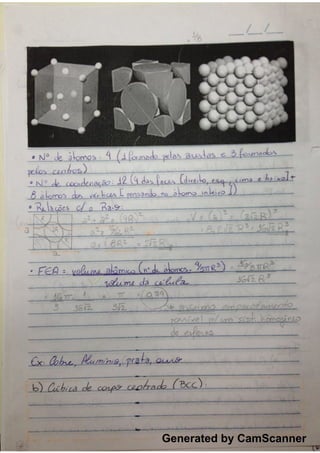 1/8
• Nº de átomos: 4 (1 formado pelas arestas e 3 formados
pelos centros)
• Nº de coordenação: 12 (4 das faces (direita, esq., cima e baixo) +
8 átomos dos vértices [pensando no átomo inteiro])
• Relações c/ o Raio:
a² + a² = (4R)²
V = (a)³ = (2√2R)³
a = √8R² = 2√2R
• FEA = volume atômico (nº de átomos · 4/3πR³)
volume da célula
16√2R³
3 16√2 3√2
máximo empacotamento
possível p/ um sist. homogêneo
de esferas
Ex: Cobre, Alumínio, prata, ouro
b) Cúbica de corpo centrado (BCC)
Generated by CamScanner